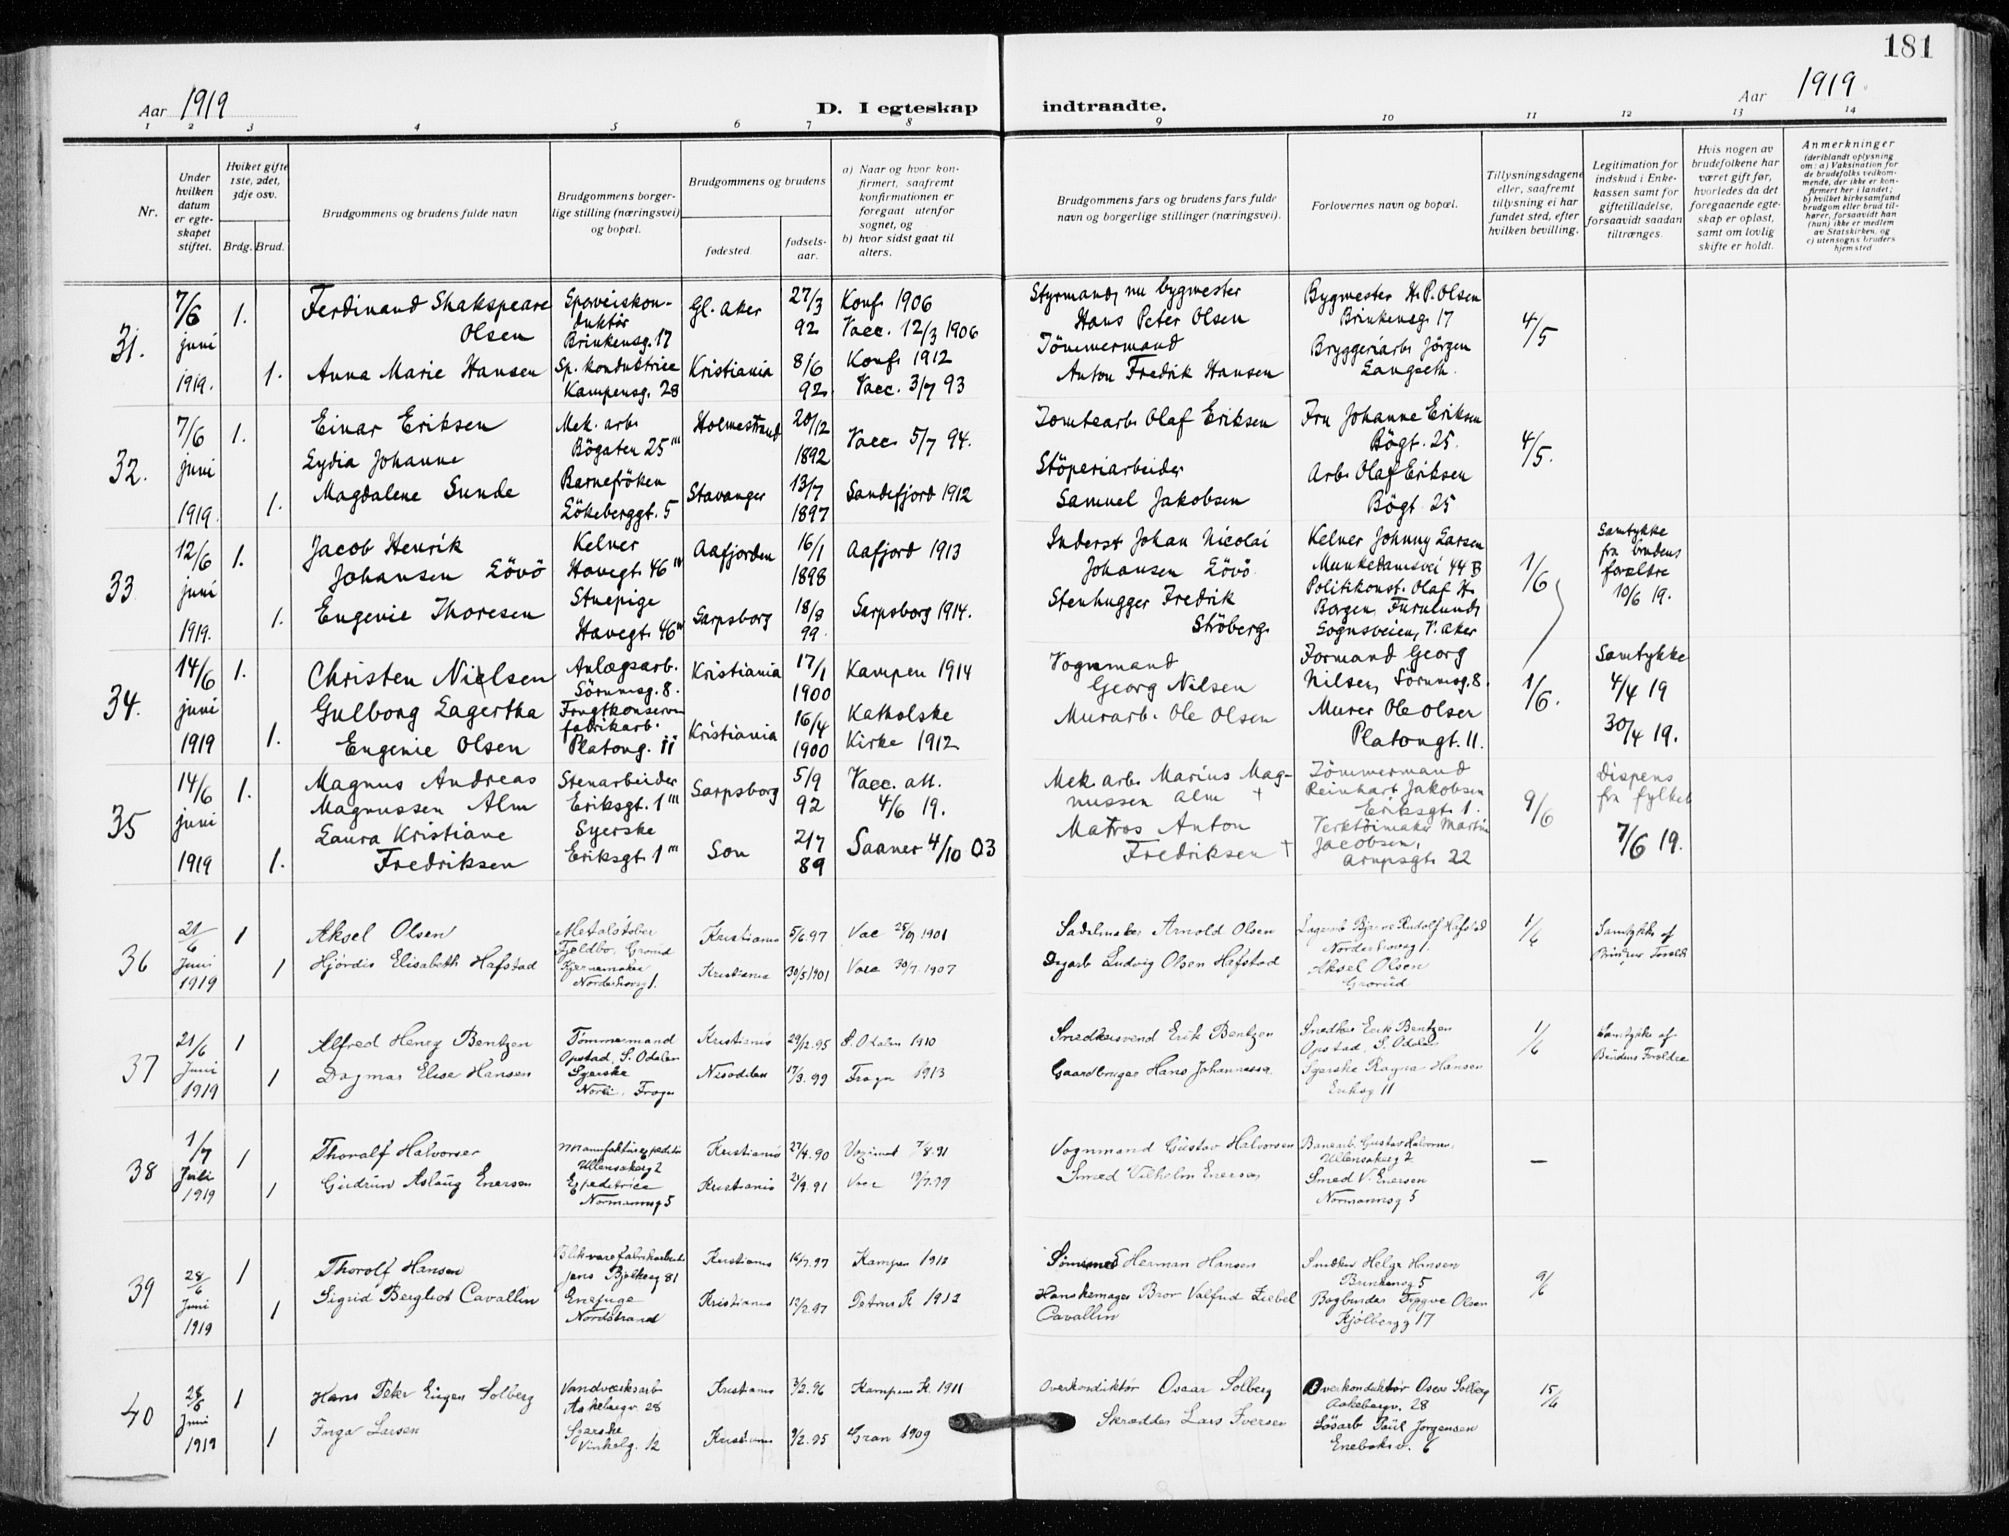 181
Aar 1919
D. I egteskap indtraadte.
Aar 1919
1 2 3 4 5 6 7 8 9 10 11 12 13 14
Nr.
Under hvilken datum er egteskapet stiftet.
Hvilket gifte 1ste, 2det, 3dje osv.
Brdg. Brud.
Brudgommens og brudens fulde navn
Brudgommens borgerlige stilling (næringsvei) og bopæl.
Brudgommens og brudens
fødested.
fødselsaar.
a) Naar og hvor konfirmert, saafremt konfirmationen er foregaat utenfor sognet, og
b) hvor sidst gaat til alters.
Brudgommens fars og brudens fars fulde navn og borgerlige stillinger (næringsvei).
Forlovernes navn og bopæl.
Tillysningsdagene eller, saafremt tillysning ei har fundet sted, efter hvilken bevilling.
Legitimation for indskud i Enkekassen samt for giftetilladelse, forsaavidt saadan tiltrænges.
Hvis nogen av brudefolkene har været gift før, hvorledes da det foregaaende egteskap er opløst, samt om lovlig skifte er holdt.
Anmerkninger
(deriblandt oplysning om: a) Vaksination for de brudefolks vedkommende, der ikke er konfirmert her i landet; b) hvilket kirkesamfund brudgom eller brud tilhører, forsaavidt han (hun) ikke er medlem av Statskirken, og c) utensogns bruders hjemsted
31.
7/6 juni 1919.
1.
Ferdinand Shakspeare Olsen
Sporveiskonduktør Brinkensg. 17
Gl. aker
27/3 92
Konf. 1906
Vacc. 12/3 1906
Styrmand, nu bygmester Hans Peter Olsen
Bygmester H.P. Olsen Brinkensg. 17
4/5
1.
Anna Marie Hansen
Sp. konduktrice Kampensg. 28
Kristiania
8/6 92.
Konf. 1912
Vacc. 3/7 93
Tömmermand Anton Fredrik Hansen
Bryggeriarb. Jörgen Langseth.
32.
7/6 juni 1919.
1.
Einar Eriksen
Mek. arb. Bögaten 25 III
Holmestrand
20/12 1892
Vacc. 5/7 94.
Tomtearb. Olaf Eriksen
Fru Johanne Eriksen Bögt. 25.
4/5.
1.
Lydia Johanne Magdalene Sunde
Barnefröken Lökeberggt. 5
Stavanger
13/7 1897
Sandefjord 1912
Stöperiarbeider Samuel Jakobsen
Arb. Olaf Eriksen Bögt. 25
33
12/6 juni 1919.
1.
Jacob Henrik Johansen Lövö
Kelner Havegt. 46 IV
Aafjorden
16/1 1898
Aafjord 1913
Inderst Johan Nicolai Johansen Lövö.
Kelner Johnny Larsen Munkedamsvei 44 B
1/6
Samtykke fra brudens forældre 10/6 19.
1.
Eugenie Thoresen
Stuepige Havegt. 46 IV
Sarpsborg
18/8 99.
Sarpsborg 1914.
Stenhugger Fredrik Ströberg.
Politikonst. Olaf H. Borgen, Furulund, Sognsveien, V. aker
34.
14/6 juni 1919
1.
Christen Nielsen
Anlægsarb. Sörumsg. 8.
Kristiania
17/1 1900
Kampen 1914
Vognmand Georg Nilsen
Formand Georg Nilsen, Sörumsg. 8.
1/6.
Samtykke 4/4 19
30/4 19.
1.
Gulborg Lagertha Eugenie Olsen
Frugtkonserv. fabrikarb. Platoug. 11
Kristiania
16/4 1900
Katholske Kirke 1912
Murarb. Ole Olsen
Murer Ole Olsen Platougt. 11.
35
14/6 juni 1919
1.
Magnus Andreas Magnussen Alm
Stenarbeider Eriksgt. 1 III
Sarpsborg
5/9 92
Vacc. att. 4/6 19.
Mek. arb. Marius Magnussen Alm +
Tömmermand Reinhart Jakobsen Eriksgt. 1.
9/6
Dispens fra fylket 7/6 19.
1.
Laura Kristiane Fredriksen
Syerske Eriksgt. 1 III
Son
21/7 89
Saaner 4/10 03
Matros Anton Fredriksen +
Verktöimaker Martin Jacobsen, Arupsgt. 22
36
21/6 Juni 1919
1
Aksel Olsen
Metalstøber Fjeldbo, Grorud
Kristiania
5/6.97
Vac 25/9 1901
Sadelmaker Arnold Olsen
Lagerarb Bjarne Rudolf Hafstad Norderhovsg 1.
1/6
Samtykke af Brudens Foreldre
1
Hjördis Elisabeth Hafstad
Hjemmeværende Norderhovsg 1.
Kristiania
30/5 1901
Vacc 30/7. 1907
Dagarb Ludvig Olsen Hafstad
Aksel Olsen Grorud
37
21/6 Juni 1919
1
Alfred Henry Bentzen
Tømmermand Opstad, S. Odalen
Kristiania
29/12.95
S. Odalen 1910
Smedkusvend Erik Bentzen
Smedker Erik Bentzen Opstad, S. Odalen
1/6
Samtykke af Brudens Foreldre
1
Dagmar Elise Hansen
Syerske Norli, Frogn
Nesodden
17/3.99
Frogn 1913
Gaardbruger Hans Johannessen
Syerske Ragna Hansen Eriksg 11
38
1/7 Juli 1919
1
Thoralf Halvorsen
Manufakturexpeditør Ullensakerg 2
Kristiania
27/4.90
7/8.91
Vognmand Gustav Halvorsen
Banearb. Gustav Halvorsen, Ullensakerg 2
—
1
Gudrun Aslaug Enersen
Expeditrice Normannsg 5
Kristiania
21/9.91
Vacc 19/7.99
Smed Vilhelm Enersen
Smed V. Enersen Normannsg 5
39
28/6 Juni 1919
1
Thorolf Hansen
Blikvarefabrikarbeider Jens Bjelkesg 81
Kristiania
16/7.97
Kampen 1912
Herman Hansen
Snedker Helge Hansen Brinkensg 5
9/6
1
Sigrid Bergliot Cavallin
Enepige Nordstrand
Kristiania
12/2.97
Petrus K 1912
Hanskemager Bror Valfrid Liebel Cavallin
Bogbinder Trygve Olsen Kjølbergg 17
40
28/6 Juni 1919
1
Hans Peter Eugen Solberg
Vandværksarb Aakebergv. 28
Kristiania
3/2.96
Kampens K. 1911
Overkonduktør Oscar Solberg
Overkonduktør Oscar Solberg Aakebergv. 28
15/6
1
Inga Larsen
Syerske Vinkelg. 12
Kristiania
9/2.95
Gran 1909
Skrædder Lars Iversen
Løsarb Paul Jorgensen Enebakv. 6